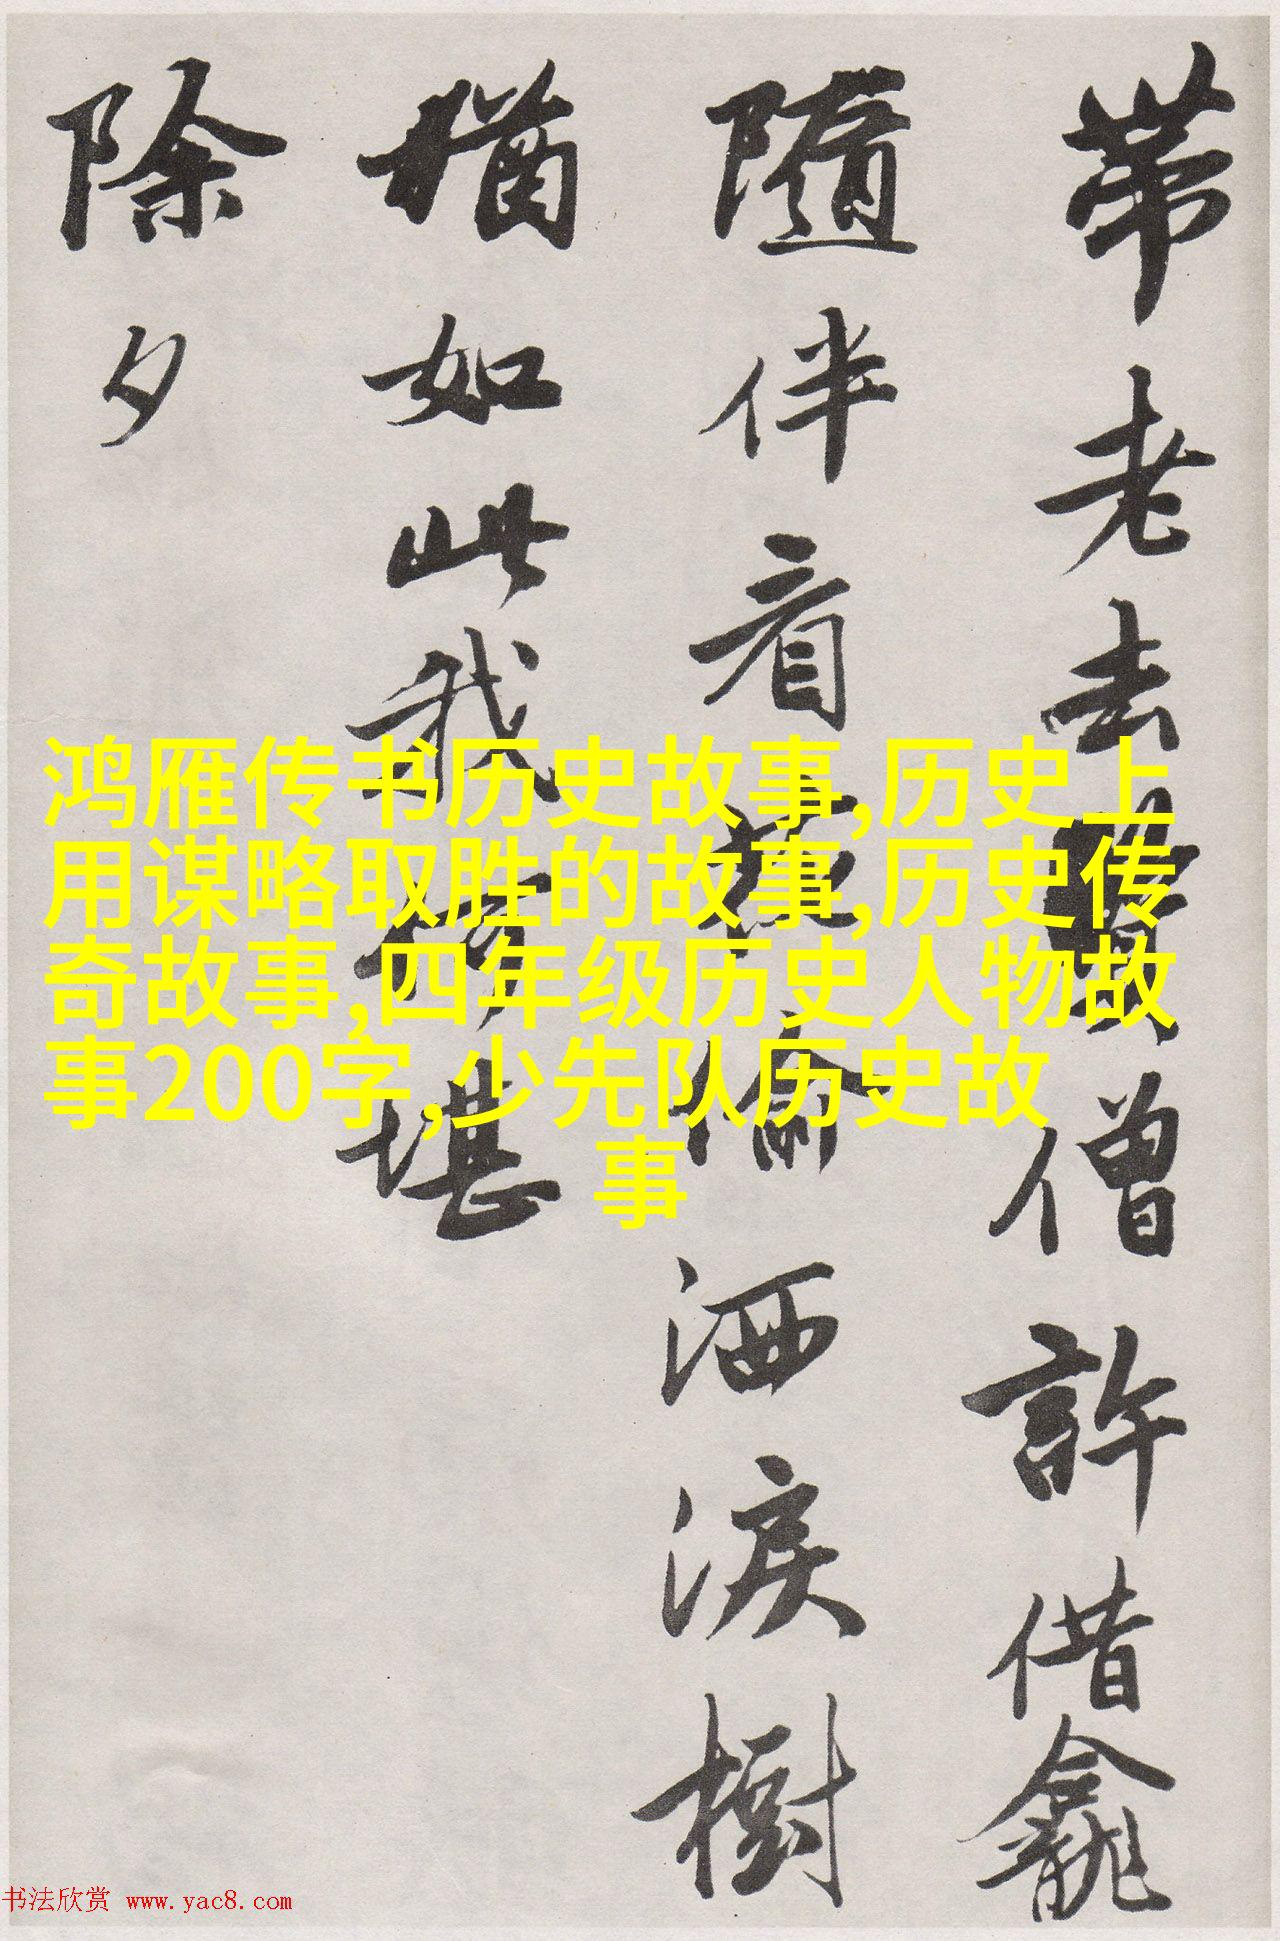 帶老去僧許借龕
隨伴看洒淚樹
猶如此我堪
除夕
鸿雁传书历史故事,历史上
用谋略取胜的故事,历史传
奇故事,四年级历史人物故
事200字,少先队历史故
事
书法欣赏 www.yac8.com